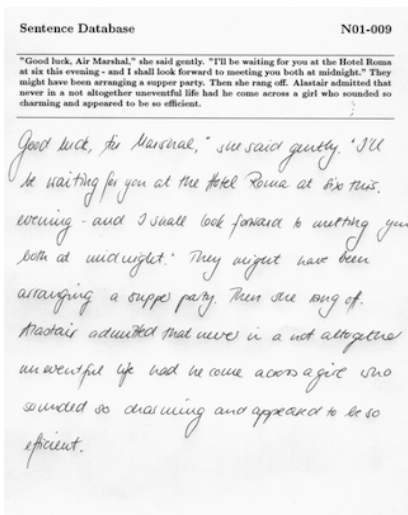 Sentence Database N01-009
"Good luck, Air Marshal," she said gently. "I'll be waiting for you at the Hotel Roma
at six this evening - and I shall look forward to meeting you both at midnight." They
might have been arranging a supper party. Then she rang off. Alastair admitted that
never in a not altogether uneventful life had he come across a girl who sounded so
charming and appeared to be so efficient.
Good luck, Air Marshal," she said gently. "I'll
be waiting for you at the Hotel Roma at six this.
evening - and I shall look forward to metting you
both at midnight." They might have been
arranging a supper party. Then she rang of.
Alastair admitted that never in a not altogether
uneventful life had he come across a girl who
sounded so charming and appeared to be so
efficient.